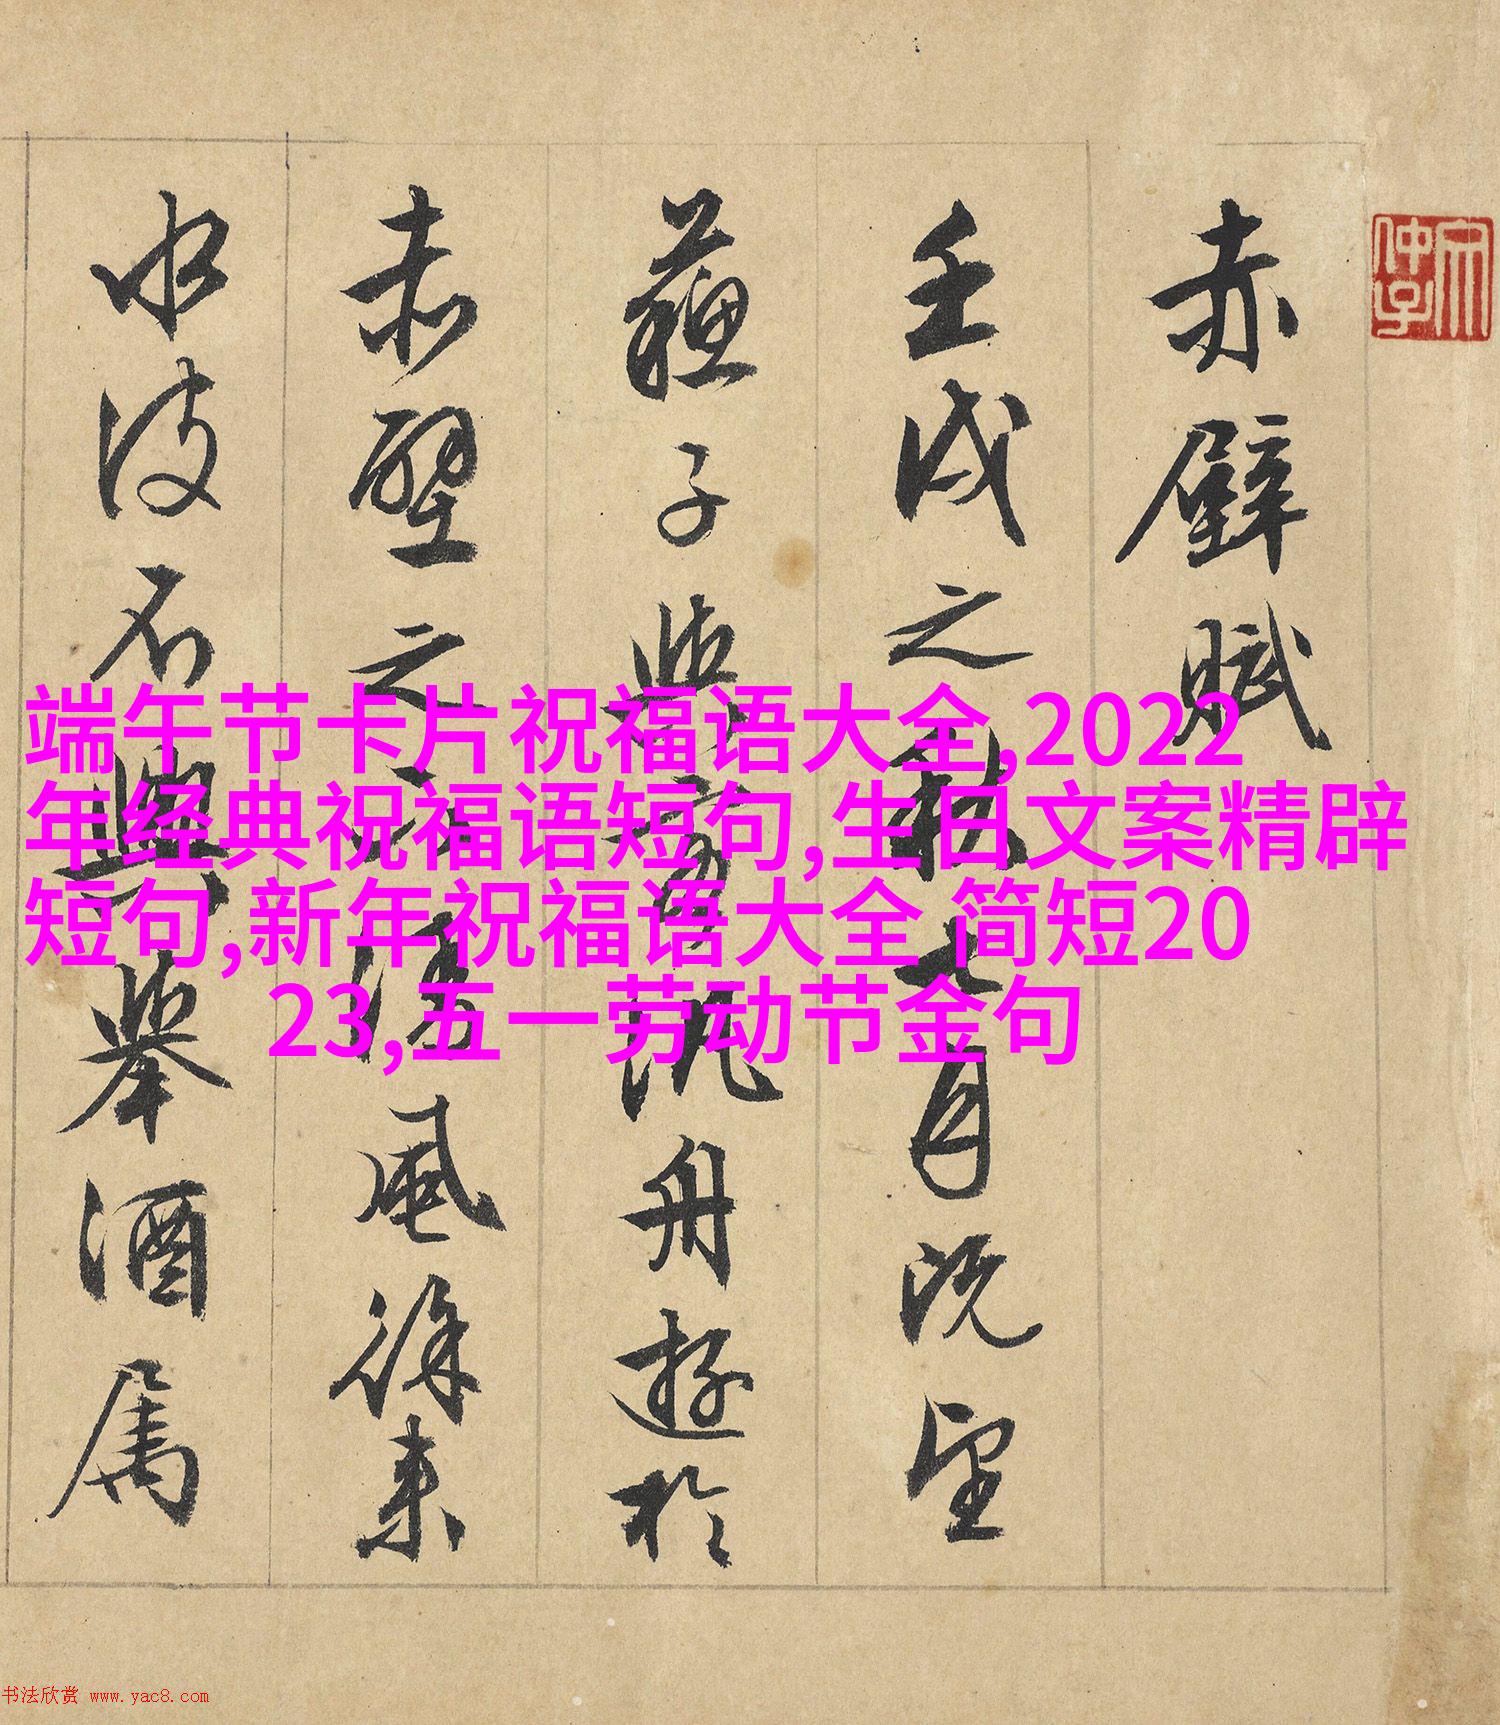 赤壁賦
壬戌之秋七月既望
蘇子與客汎舟遊於
赤壁之下清風徐来
水波不興舉酒属
端午节卡片祝福语大全,2022
年经典祝福语短句,生日文案精辟
短句,新年祝福语大全 简短20
23,五一劳动节金句
书法欣赏 www.yac8.com